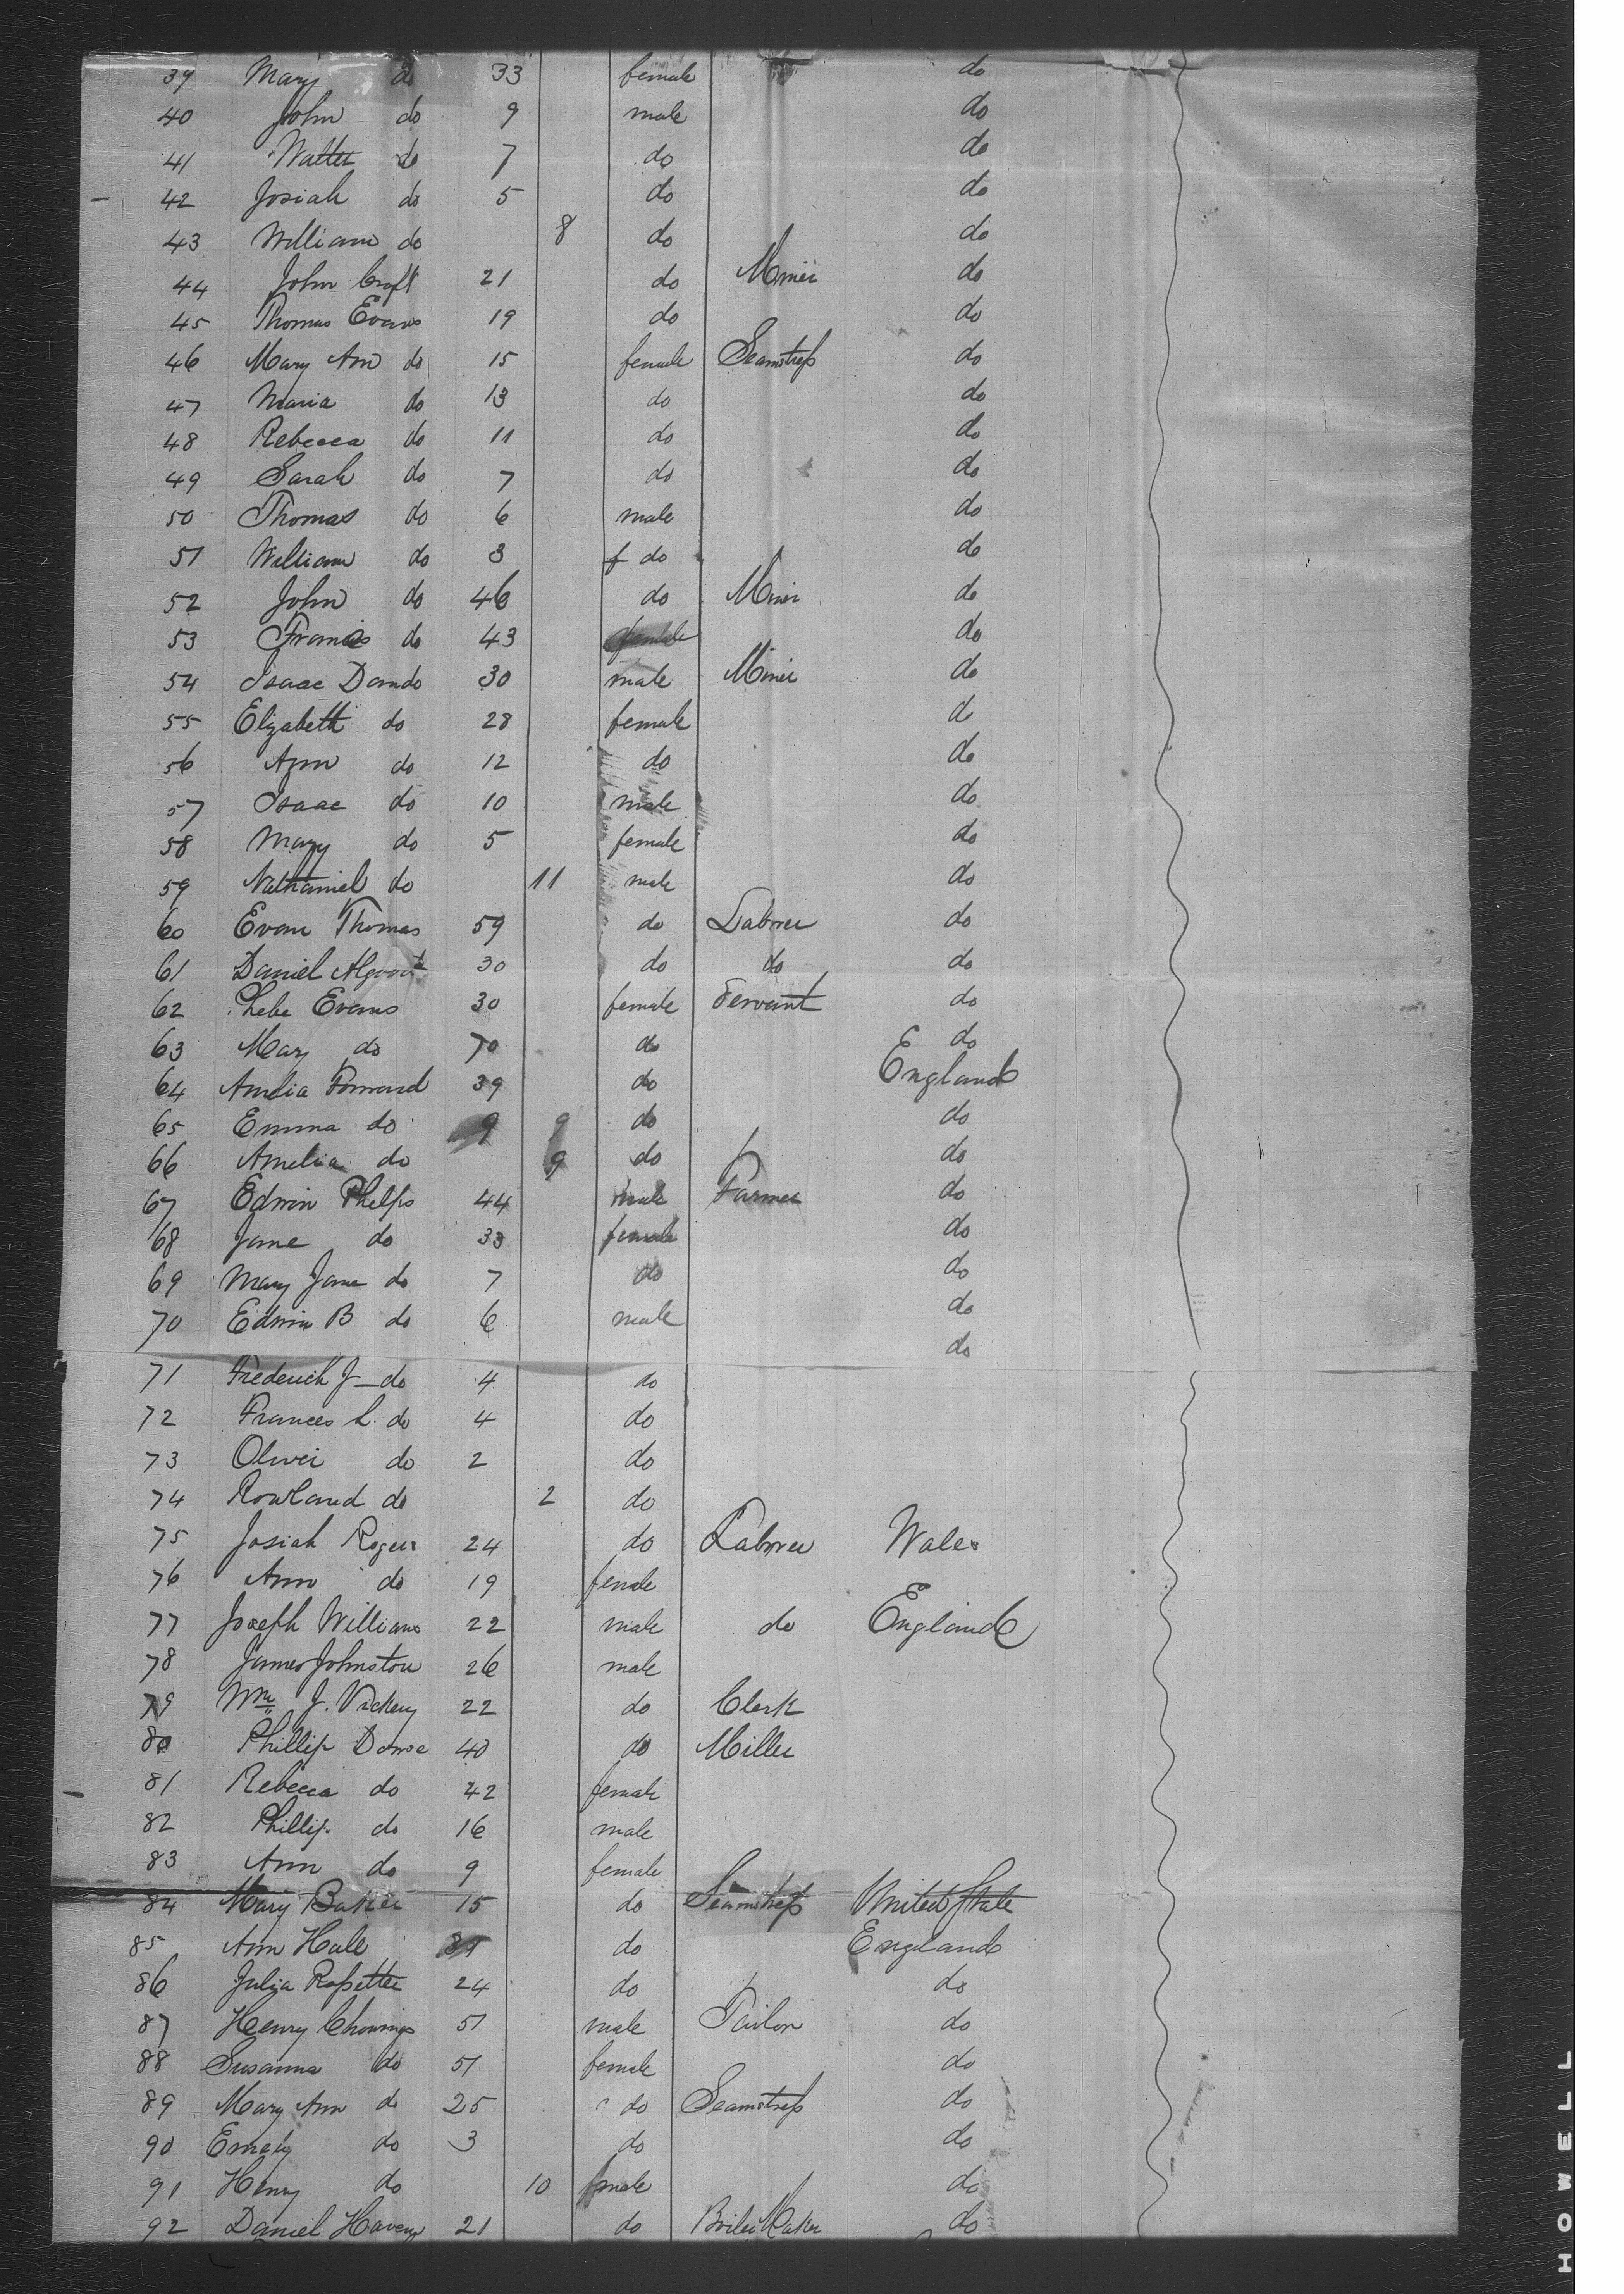 39 Mary do 33 female do
40 John do 9 male do
41 Walter do 7 do do
42 Josiah do 5 do do
43 William do 8 do do
44 John Croft 21 do Miner do
45 Thomas Evans 19 do do
46 Mary Ann do 15 female Seamstress do
47 Maria do 13 do do
48 Rebecca do 11 do do
49 Sarah do 7 do do
50 Thomas do 6 male do
51 William do 3 f do do
52 John do 46 do Miner do
53 Francis do 43 female do
54 Isaac Dando 30 male Miner do
55 Elizabeth do 28 female do
56 Ann do 12 do do
57 Isaac do 10 male do
58 Mary do 5 female do
59 Nathaniel do 11 male do
60 Evan Thomas 59 do Laborer do
61 Daniel 30 do do do
62 Phebe Evans 30 female Servant do
63 Mary do 70 do do
64 Amelia 39 do England
65 Emma do 9 9 do do
66 Amelia do 9 do do
67 Edwin Phelps 44 male Farmer do
68 Jane do 33 female do
69 Mary Jane do 7 do do
70 Edwin B do 6 male do
do
71 Frederick J do 4 do
72 Frances L. do 4 do
73 Oliver do 2 do
74 Rowland do 2 do
75 Josiah Rogers 24 do Laborer Wales
76 Ann do 19 female
77 Joseph Williams 22 male do England
78 James Johnston 26 male
79 Wm J. Vickery 22 do Clerk
80 Phillip 40 do Miller
81 Rebecca do 42 female
82 Phillip do 16 male
83 Ann do 9 female
84 Mary Baker 15 do Seamstress United State
85 Ann Hale do England
86 Julia Rossetter 24 do do
87 Henry Chowings 51 male Tailor do
88 Susanna do 51 female do
89 Mary Ann do 25 do Seamstress do
90 Emely do 3 do do
91 Henry do 10 male do
92 Daniel 21 do Boiler Maker do
HOWELL